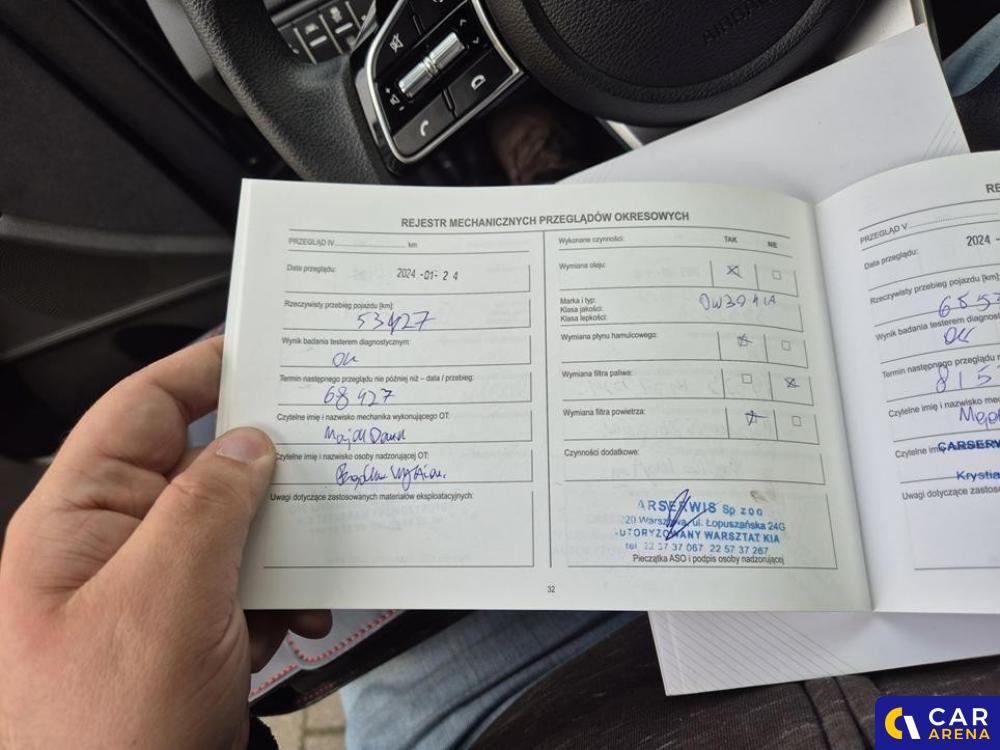 AIRBAG
REJESTR MECHANICZNYCH PRZEGLĄDÓW OKRESOWYCH
PRZEGLĄD IV.................... km
Data przeglądu: 2024 -01- 2 4
Rzeczywisty przebieg pojazdu [km]:
53427
Wynik badania testerem diagnostycznym:
OK
Termin następnego przeglądu nie później niż – data / przebieg:
68427
Czytelne imię i nazwisko mechanika wykonującego OT:
Czytelne imię i nazwisko osoby nadzorującej OT:
Uwagi dotyczące zastosowanych materiałów eksploatacyjnych:
Wykonane czynności: TAK NIE
Wymiana oleju:
Marka i typ:
Klasa jakości:
Klasa lepkości:
0W30
Wymiana płynu hamulcowego:
Wymiana filtra paliwa:
Wymiana filtra powietrza:
Czynności dodatkowe:
ARSERWIS Sp z o o
220 Warszawa, ul. Łopuszańska 24G
UTORYZOWANY WARSZTAT KIA
tel 22 57 37 067 22 57 37 267
Pieczątka ASO i podpis osoby nadzorującej
32
RE
PRZEGLĄD V
Data przeglądu: 2024 -
Rzeczywisty przebieg pojazdu [km]:
Wynik badania testerem diagnosty
OK
Termin następnego przeglądu n
Czytelne imię i nazwisko mec
Czytelne imię CARSERW
Krystia
Uwagi dotyczące zastoso
CAR
ARENA